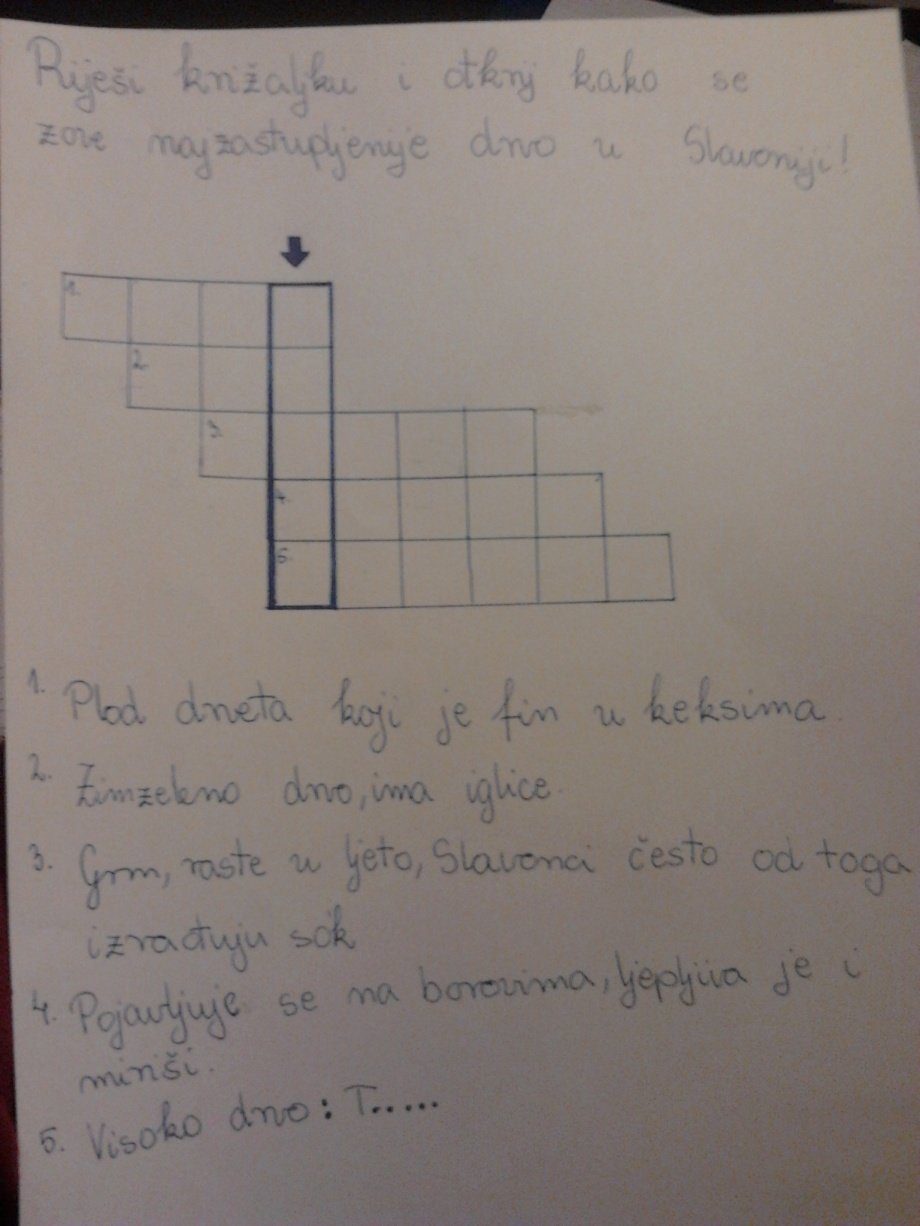 Riješi križaljku i otkrij kako se
zove najzastupljenije drvo u Slavoniji!
1.
2.
3.
4.
5.
1. Plod drveta koji je fin u keksima.
2. Zimzeleno drvo, ima iglice.
3. Grm, raste u ljeto, Slavonci često od toga
izrađuju sok
4. Pojavljuje se na borovima, ljepljiva je i
miriši.
5. Visoko drvo: T.....